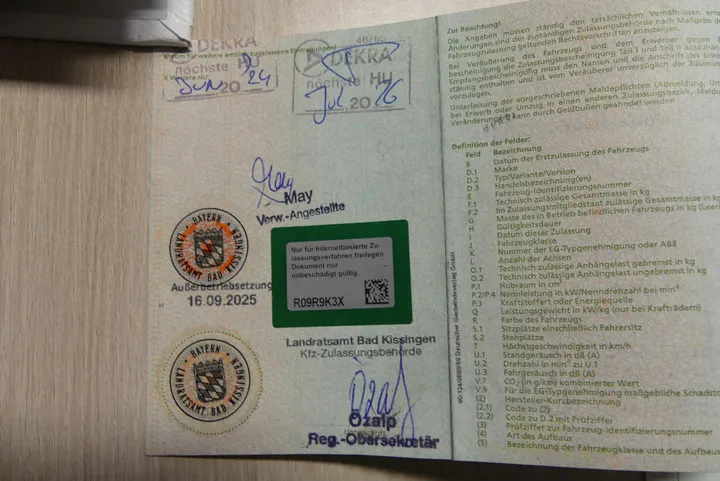 DEKRA
nächste HU
Jun 24
20
48765
DEKRA
nächste HU
Jul 20 26
May
Verw.-Angestellte
BAYERN
LANDRATSAMT BAD KISSINGEN
Außerbetriebsetzung
16.09.2025
Nur für internetbasierte Zu-
lassungsverfahren freilegen.
Dokument nur
unbeschädigt gültig.
R09R9K3X
Landratsamt Bad Kissingen
Kfz-Zulassungsbehörde
BAYERN
LANDRATSAMT BAD KISSINGEN
Özalp
Reg.-Obersekretär
Zur Beachtung!
Die Angaben müssen ständig den tatsächlichen Verhältnissen
Änderungen sind der zuständigen Zulassungsbehörde nach Maßgabe
Fahrzeugzulassung geltenden Rechtsvorschriften anzuzeigen.
Bei Veräußerung des Fahrzeugs sind dem Erwerber gegen
bescheinigung die Zulassungsbescheinigung Teil I und Teil II
vorzulegen.
Unterlassung der vorgeschriebenen Meldepflichten (Abmeldung,
bei Erwerb oder Umzug in einen anderen Zulassungsbezirk,
kann durch Geldbußen geahndet werden
Definition der Felder:
Feld Bezeichnung
B Datum der Erstzulassung des Fahrzeugs
D.1 Marke
D.2 Typ/Variante/Version
D.3 Handelsbezeichnung(en)
E Fahrzeug-Identifizierungsnummer
F.1 Technisch zulässige Gesamtmasse in kg
F.2 Im Zulassungsmitgliedstaat zulässige Gesamtmasse in kg
G Masse des in Betrieb befindlichen Fahrzeugs in kg
H Gültigkeitsdauer
I Datum dieser Zulassung
J Fahrzeugklasse
K Nummer der EG-Typgenehmigung oder ABE
L Anzahl der Achsen
O.1 Technisch zulässige Anhängelast gebremst in kg
O.2 Technisch zulässige Anhängelast ungebremst in kg
P.1 Hubraum in cm³
P.2/P.4 Nennleistung in kW/Nenndrehzahl bei min⁻¹
P.3 Kraftstoffart oder Energiequelle
Q Leistungsgewicht in kW/kg (nur bei Krafträdern)
R Farbe des Fahrzeugs
S.1 Sitzplätze einschließlich Fahrersitz
S.2 Stehplätze
T Höchstgeschwindigkeit in km/h
U.1 Standgeräusch in dB (A)
U.2 Drehzahl in min⁻¹ zu U.1
U.3 Fahrgeräusch in dB (A)
V.7 CO₂ (in g/km) kombinierter Wert
V.9 Für die EG-Typgenehmigung maßgebliche
(2) Hersteller-Kurzbezeichnung
(2.1) Code zu (2)
(2.2) Code zu D.2 mit Prüfziffer
(3) Prüfziffer zur Fahrzeug-Identifizierungsnummer
(4) Art des Aufbaus
(5) Bezeichnung der Fahrzeugklasse und des Aufbaus